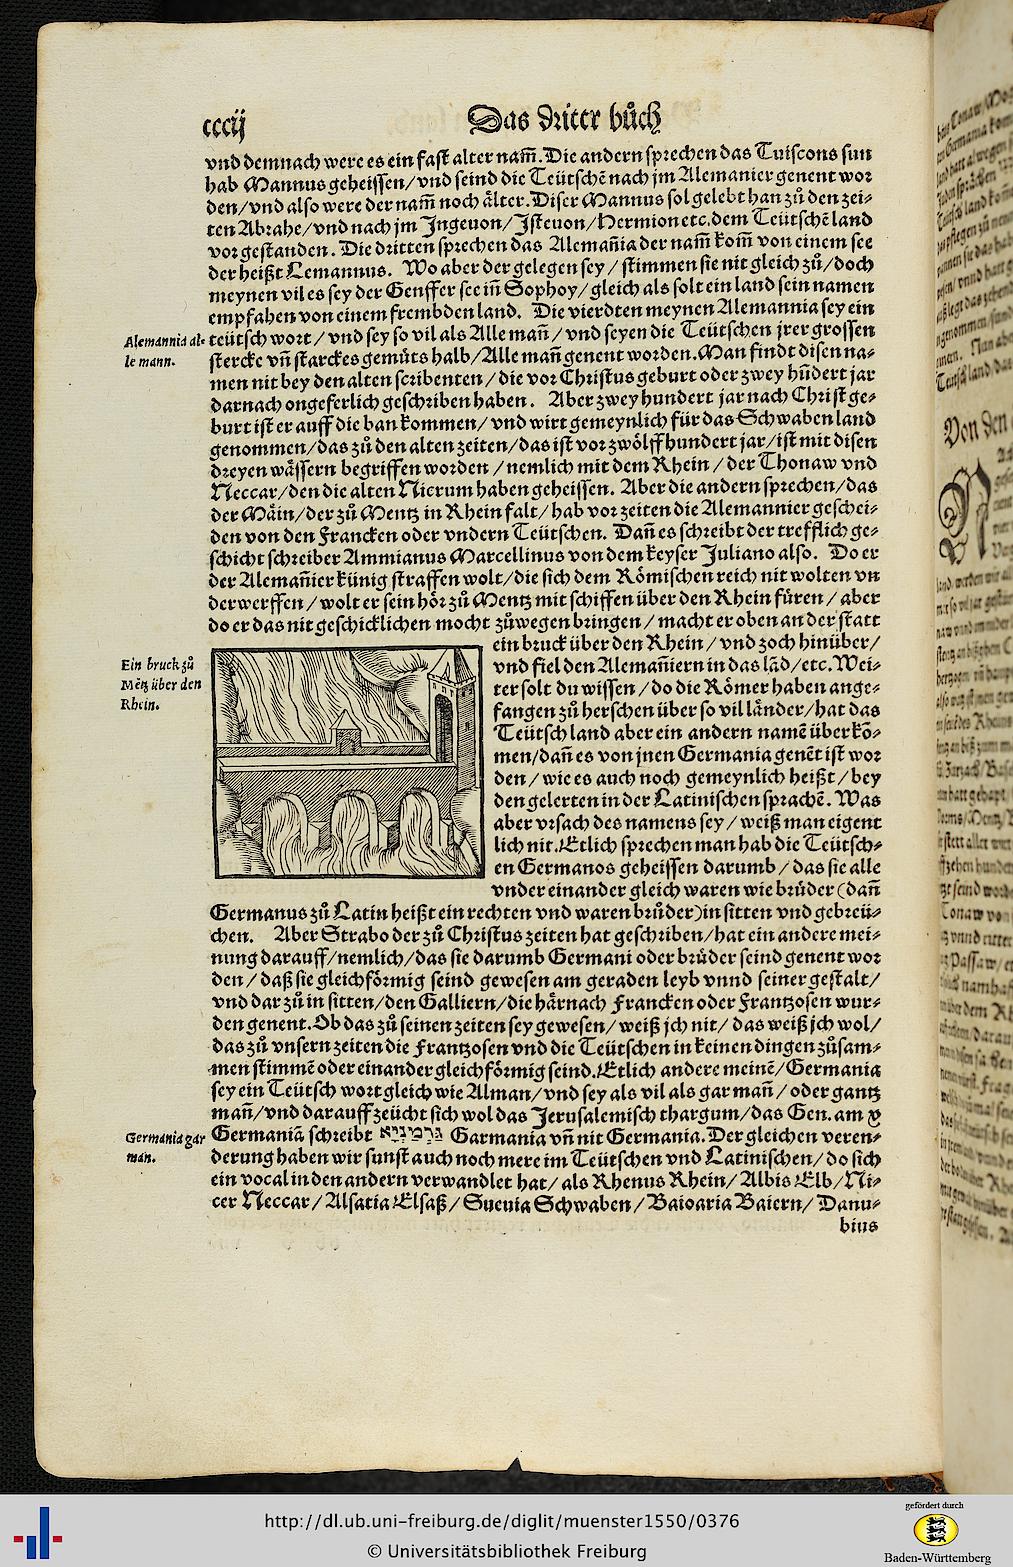 cccij
Das dritte bůch
vnd demnach were es ein fast alter nam̃. Die andern sprechen das Tuiscons sun
hab Mannus geheissen/vnd seind die Teütschẽ nach jm Alemanier genent wor
den/vnd also were der nam̃ noch älter. Diser Mannus sol gelebt han zů den zei-
ten Abrahe/vnd nach jm Ingeuon/Isteuon/Hermion etc. dem Teütschẽ land
vor gestanden. Die dritten sprechen das Alemañia der nam̃ kom̃ von einem see
der heißt Lemannus. Wo aber der gelegen sey/stimmen sie nit gleich zů/doch
meynen vil es sey der Genffer see iñ Sophoy/gleich als solt ein land sein namen
empfahen von einem frembden land. Die vierdten meynen Alemannia sey ein
teütsch wort/vnd sey so vil als Alle mañ/vnd seyen die Teütschen jrer grossen
stercke vñ starckes gemůts halb/Alle mañ genent worden. Man findt disen na-
men nit bey den alten scribenten/die vor Christus geburt oder zwey hũdert jar
darnach ongeferlich geschriben haben. Aber zwey hundert jar nach Christ ge-
burt ist er auff die ban kommen/vnd wirt gemeynlich für das Schwaben land
genommen/das zů den alten zeiten/das ist vor zwölff hundert jar/ist mit disen
dreyen wässern begriffen worden/nemlich mit dem Rhein/der Thonaw vnd
Neccar/den die alten Nicrum haben geheissen. Aber die andern sprechen/das
der Mäin/der zů Mentz in Rhein falt/hab vor zeiten die Alemannier geschei-
den von den Francken oder vndern Teütschen. Dañ es schreibt der trefflich ge-
schicht schreiber Ammianus Marcellinus von dem keyser Juliano also. Do er
der Alemañier künig straffen wolt/die sich dem Römischen reich nit wolten vn
derwerffen/wolt er sein hör zů Mentz mit schiffen über den Rhein füren/aber
do er das nit geschicklichen mocht zůwegen bringen/macht er oben an der statt
ein bruck über den Rhein/vnd zoch hinüber/
vnd fiel den Alemañiern in das lãd/etc. Wei-
ter solt du wissen/do die Römer haben ange-
fangen zů herschen über so vil länder/hat das
Teütsch land aber ein andern namẽ überkõ-
men/dañ es von jnen Germania genẽt ist wor
den/wie es auch noch gemeynlich heißt/bey
den gelerten in der Latinischen sprachẽ. Was
aber vrsach des namens sey/weiß man eigent
lich nit. Etlich sprechen man hab die Teütsch-
en Germanos geheissen darumb/das sie alle
vnder einander gleich waren wie brüder (dañ
Germanus zů Latin heißt ein rechten vnd waren brůder) in sitten vnd gebreü-
chen. Aber Strabo der zů Christus zeiten hat geschriben/hat ein andere mei-
nung darauff/nemlich/das sie darumb Germani oder brüder seind genent wor
den/daß sie gleichförmig seind gewesen am geraden leyb vnnd seiner gestalt/
vnd dar zů in sitten/den Galliern/die härnach Francken oder Frantzosen wur-
den genent. Ob das zů seinen zeiten sey gewesen/weiß jch nit/das weiß jch wol/
das zů vnsern zeiten die Frantzosen vnd die Teütschen in keinen dingen zůsam-
men stimmẽ oder einander gleichförmig seind. Etlich andere meinẽ/Germania
sey ein Teütsch wort gleich wie Alman/vnd sey als vil als gar mañ/oder gantz
mañ/vnd darauff zeücht sich wol das Jerusalemisch thargum/das Gen. am x
Germaniã schreibt גרמניא Garmania vñ nit Germania. Der gleichen veren-
derung haben wir sunst auch noch mere im Teütschen vnd Latinischen/do sich
ein vocal in den andern verwandlet hat/als Rhenus Rhein/Albis Elb/Ni-
cer Neccar/Alsatia Elsaß/Sueuia Schwaben/Baioaria Baiern/Danu-
bius
Alemannia al-
le mann.
Ein bruck zů
Mẽtz über den
Rhein.
Germania gar
man.
Von den
http://dl.ub.uni-freiburg.de/diglit/muenster1550/0376
© Universitätsbibliothek Freiburg
gefördert durch
Baden-Württemberg